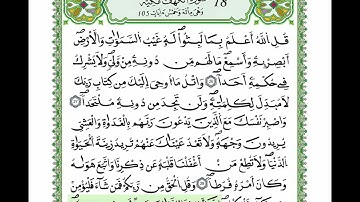 سورة الكهف مكية 18
وهي مائة وخمس آيات 105
قل الله أعلم بما لبثوا له غيب السموات والأرض
أبصر به وأسمع ما لهم من دونه من ولي ولا يشرك
في حكمه أحدا واتل ما أوحي إليك من كتاب ربك
لا مبدل لكلماته ولن تجد من دونه ملتحدا
واصبر نفسك مع الذين يدعون ربهم بالغدوة والعشي
يريدون وجهه ولا تعد عيناك عنهم تريد زينة الحيوة
الدنيا ولا تطع من أغفلنا قلبه عن ذكرنا واتبع هوىه
وكان أمره فرطا وقل الحق من ربكم فمن شاء فليؤمن